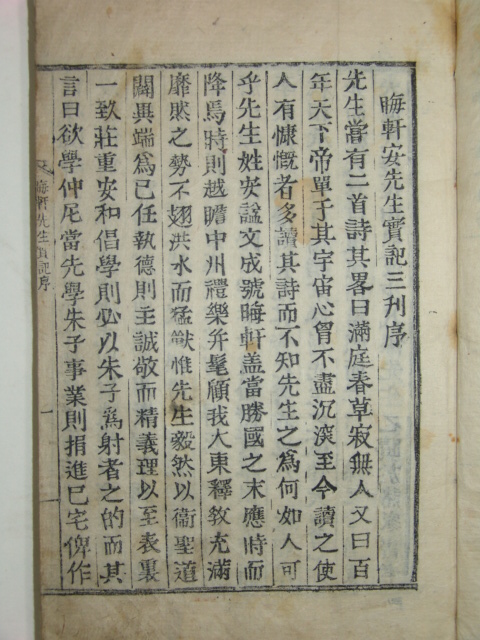 晦軒安先生實記三刊序
先生嘗有二首詩其畧曰滿庭春草寂無人又曰百
年天下帝單于其宇宙心胷不盡沉淚至今讀之使
人有慷慨者多讀其詩而不知先生之爲何如人可
乎先生姓安諡文成號晦軒盖當勝國之末應時而
降焉時則越瞻中州禮樂弁髦顧我大東釋敎充滿
靡然之勢不翅洪水而猛獸惟先生毅然以衞聖道
闢異端爲己任執德則主誠敬而精義理以至表裏
一致莊重安和倡學則必以朱子爲射者之的而其
言曰欲學仲尼當先學朱子事業則捐進已宅俾作
晦軒先生實記序
一